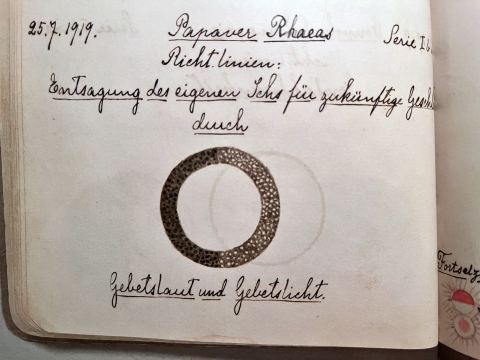 25.7.1919. Papaver Rhaeas Serie I
Richtlinien:
Entsagung des eigenen Ichs für zukünftige
durch
Gebetslaut und Gebetslicht.